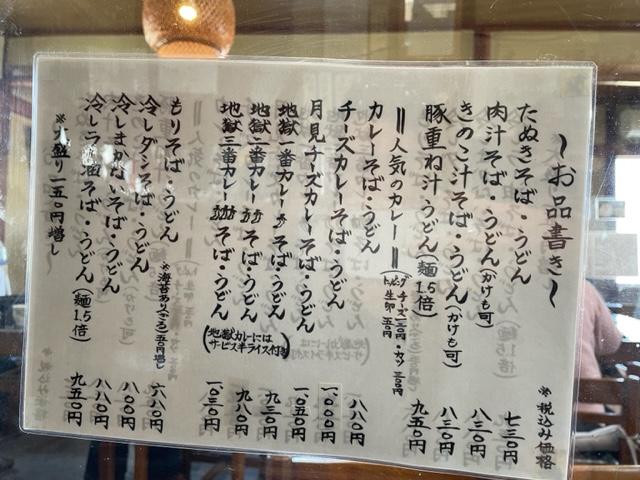 ～お品書き～
※税込み価格
たぬきそば・うどん 七三〇円
肉汁そば・うどん(かけも可) 八三〇円
きのこ汁そば・うどん(かけも可) 八三〇円
豚重ね汁・うどん(麺1.5倍) 九五〇円
＝人気のカレー＝
生卵 五〇円
カレーそば・うどん 八八〇円
チーズカレーそば・うどん 一〇〇〇円
月見チーズカレーそば・うどん 一〇五〇円
地獄一番カレーそば・うどん 九三〇円
地獄二番カレーそば・うどん 九八〇円
地獄三番カレーそば・うどん 一〇三〇円
(地獄カレーには
サービス半ライス付き)
もりそば・うどん 六八〇円
※海苔あり(ざる)五〇円増し
冷しダシそば・うどん 八〇〇円
冷しまかないそば・うどん 八八〇円
冷しラー油そば・うどん(麺1.5倍) 九五〇円
※大盛り一五〇円増し